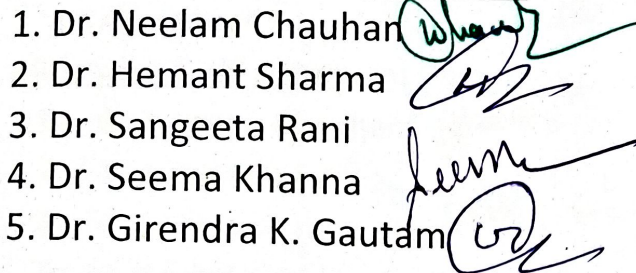 1. Dr. Neelam Chauhan
2. Dr. Hemant Sharma
3. Dr. Sangeeta Rani
4. Dr. Seema Khanna
5. Dr. Girendra K. Gautam